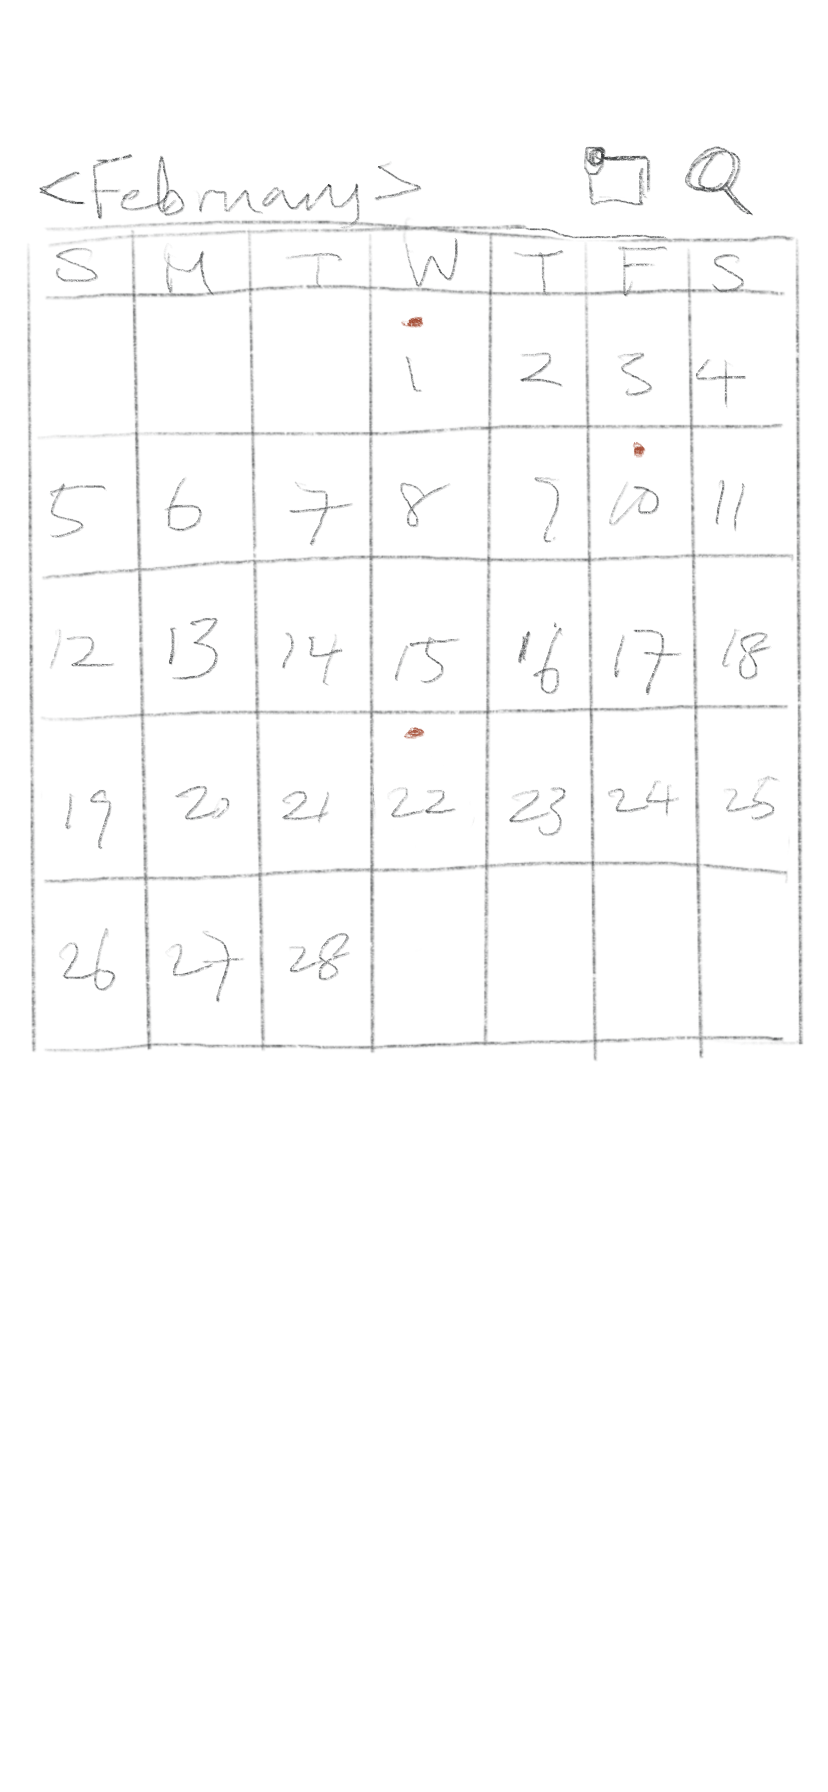 <February>
S M T W T F S
1 2 3 4
5 6 7 8 9 10 11
12 13 14 15 16 17 18
19 20 21 22 23 24 25
26 27 28